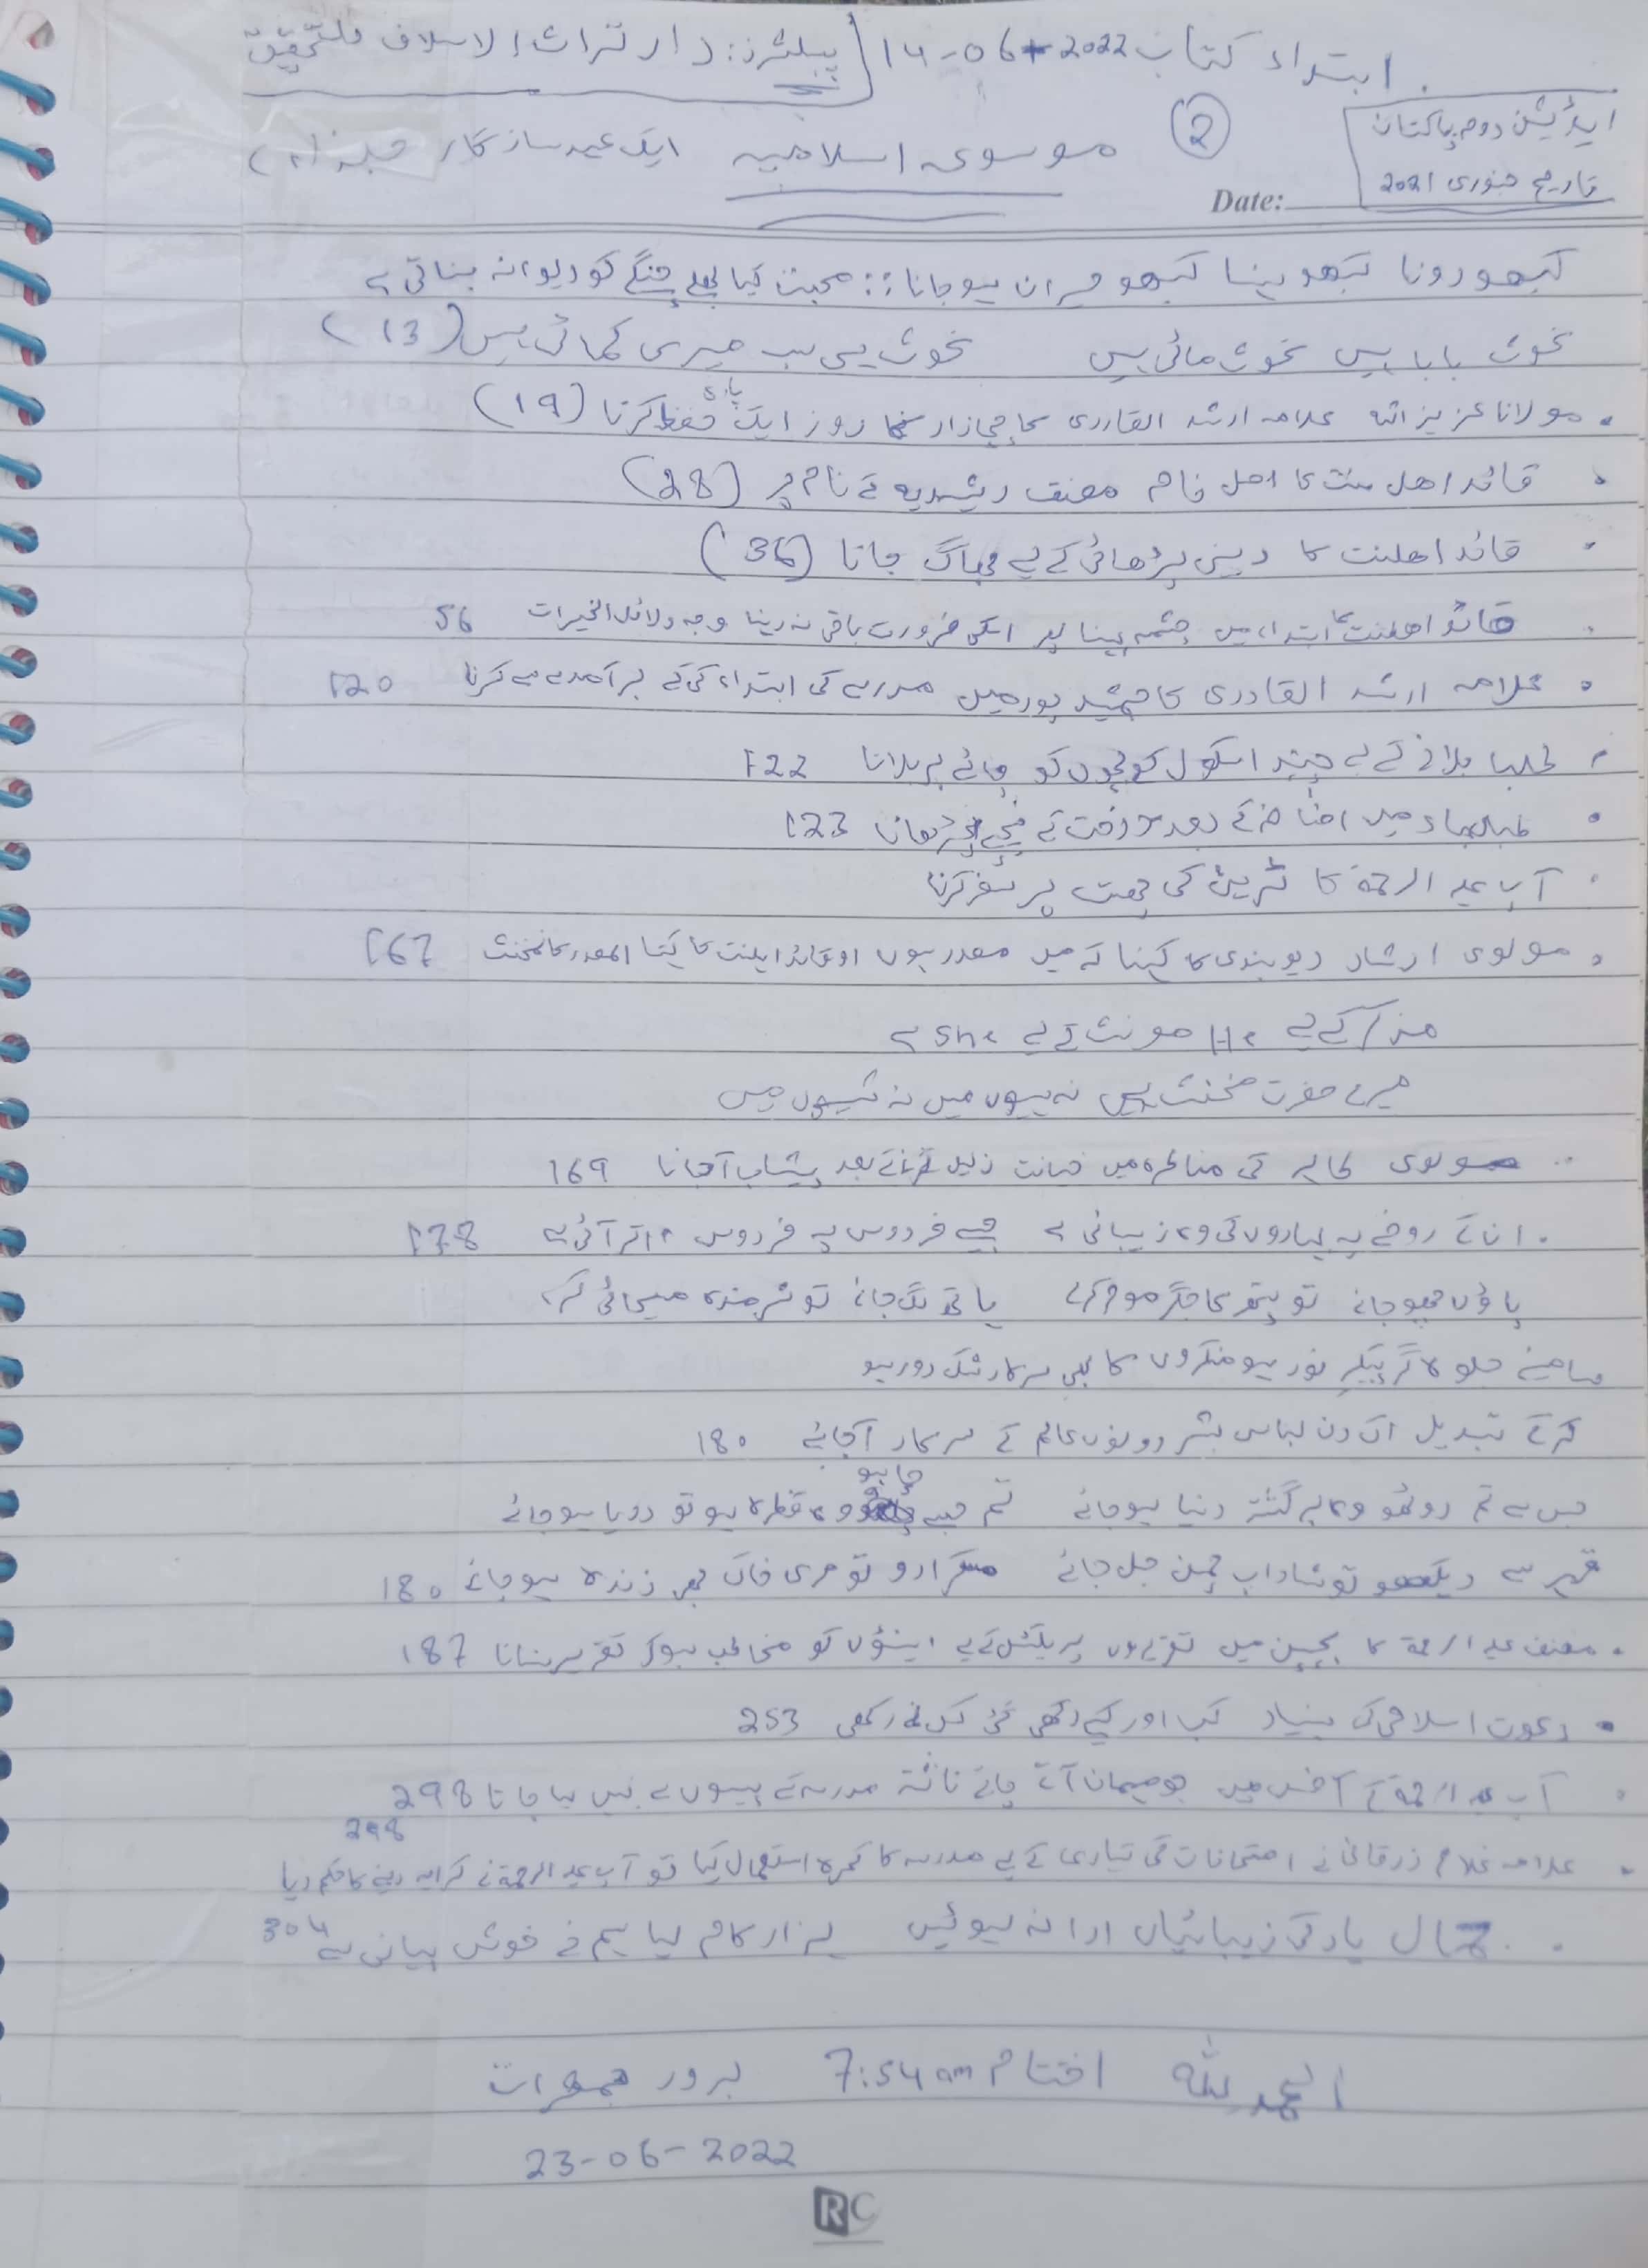 ابتداء کتاب 14-06-2022 پبلشرز: دار تراث الاسلاف للتحقیق
ایڈیشن دوم پاکستان
تاریخ جنوری 2021
② موسوی اسلامیہ ایک عہد ساز کار جلد (۱)
Date:
کبھو رونا کبھو ہنسا کبھو حیران ہوجانا :: محبت کیا بھلے چنگے کو دیوانہ بناتی ہے
غوث بابا ہیں غوث مائی ہیں غوث ہی سب میری کمائی ہیں (13)
مولانا عزیز اللہ علامہ ارشد القادری کا چچازاد تھا روز ایک پارہ حفظ کرنا (19)
قائد اھل سنت کا اصل نام مصنف رشیدیہ کے نام پر (28)
قائد اھلسنت کا دینی پڑھائی کے لیے بھاگ جانا (36)
قائد اھلسنت کا ابتداء میں چشمہ پہننا پھر اسکی ضرورت باقی نہ رہنا وجہ دلائل الخیرات 56
علامہ ارشد القادری کا جمشید پور میں مدرسے کی ابتداء کی کے برآمدے سے کرنا 120
طلبا بلانے کے لیے چند اسکول کو بچوں کو چائے پر بلانا 122
میں کے بعد درخت کے نیچے پڑھانا 123
آپ علیہ الرحمۃ کا ٹرین کی چھت پر سفر کرنا
مولوی ارشاد دیوبندی کا کہنا کہ میں صدر ہوں او قائد اہلسنت کا کہنا کا مخنث 167
مذکر کے لیے He مونث کے لیے She ہے
میرے حضرت مخنث ہیں نہ ہیوں میں نہ شیوں میں
مولوی طاہر کی مناظرہ میں خیانت ذلیل کرنا کے بعد پیشاب آجانا 169
ان کے روضے پہ بہاروں کی وہ زیبائی ہے جیسے فردوس پہ فردوس اتر آئی ہے 178
پاؤں چھو جائے تو پتھر کا جگر موم کرے ہاتھ لگ جائے تو شرمندہ مسیحائی کرے
سامنے جلوہ گر پیکر نور ہو منکروں کا بھی سرکار شک دور ہو
کرکے تبدیل اک دن لباس بشر دونوں عالم کے سرکار آجائیے 180
جس سے تم روٹھو وہ برگشتہ دنیا ہوجائے تم جسے چاہو وہ قطرہ ہو تو دریا ہوجائے
قہر سے دیکھو تو شاداب چمن جل جائے مسکرادو تو مری خاک بھی زندہ ہوجائے 180
مصنف علیہ الرحمۃ کا بچپن میں تقریروں پریکٹس کے لیے اینٹوں کو مخاطب ہوکر تقریر سنانا 187
دعوت اسلامی کی بنیاد کب اور کیسے رکھی گئی کس نے رکھی 253
آپ علیہ الرحمۃ کے آفس میں جو مہمان آتے چائے ناشتہ مدرسہ کے پیسوں سے نہیں کیا جاتا 298
298
علامہ غلام زرقانی نے امتحانات کی تیاری کے لیے مدرسہ کا کمرہ استعمال کیا تو آپ علیہ الرحمۃ نے کرایہ دینے کا حکم دیا
جمال یار کی زیبائیاں ادا نہ ہوئیں ہزار کام لیا ہم نے خوش بیانی سے 304
الحمد للہ اختتام 7:54 am بروز جمعرات
23-06-2022
RC